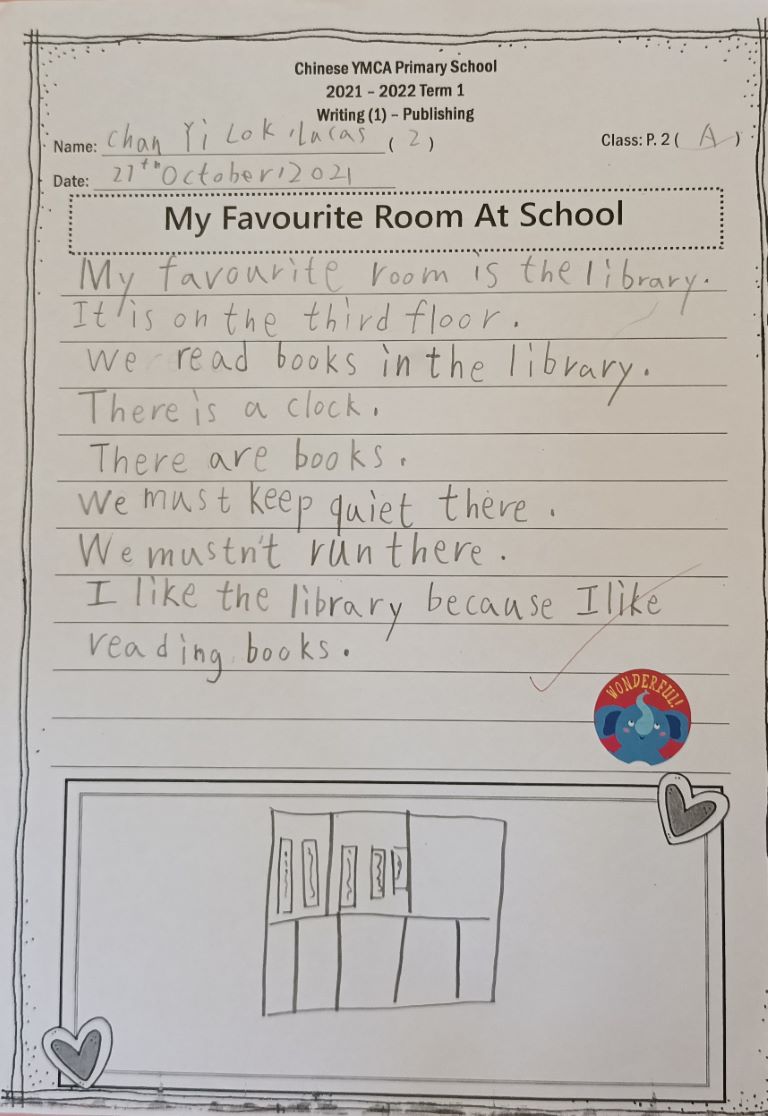 Chinese YMCA Primary School
2021 - 2022 Term 1
Writing (1) – Publishing
Name: Chan Yi Lok, Lucas (2) Class: P. 2 ( A )
Date: 27th October, 2021
My Favourite Room At School
My favourite room is the library.
It is on the third floor.
We read books in the library.
There is a clock.
There are books.
We must keep quiet there.
We mustn't run there.
I like the library because I like
reading books.
WONDERFUL!